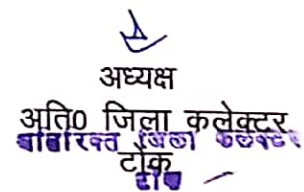 अध्यक्ष
अति0 जिला कलेक्टर
अतिरिक्त जिला कलेक्टर
टोंक
टोंक